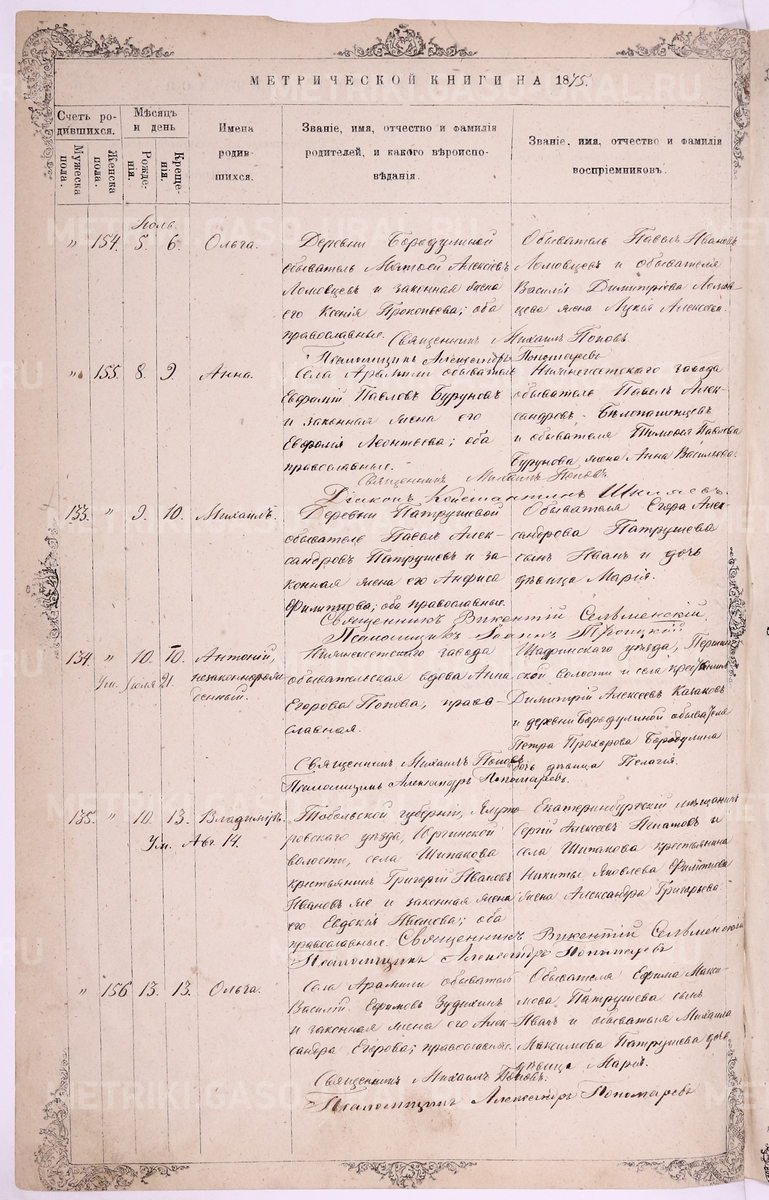 МЕТРИЧЕСКОЙ КНИГИ НА 1875.
Счетъ ро-
дившихся.
Мужеска
пола.
Женска
пола.
Мѣсяцъ
и день
Рожде-
нія.
Креще-
нія.
Имена
родив-
шихся.
Званіе, имя, отчество и фамилія
родителей, и какого вѣроиспо-
вѣданія.
Званіе, имя, отчество и фамилія
воспріемниковъ.
Іюль.
" 154. 5. 6. Ольга.
Деревни Бородулиной
обыватель Матвей Алексѣевъ
Ломовцевъ и законная жена
его Ксенія Прокопьева; оба
православные.
Обыватель Павелъ Ивановъ
Ломовцевъ и обывателя
Василія Димитріева Ломов-
цева жена Лукія Алексѣева.
Священникъ Михаилъ Поповъ.
Псаломщикъ Александръ Пономаревъ
" 155. 8. 9. Анна.
Села Арамили обыватель
Евфимій Павловъ Буруновъ
и законная жена его
Евфимія Леонтьева; оба
православные.
Нижнеисетскаго завода
обыватель Павелъ Алек-
сандровъ
и обывателя Тимофея Павлова
Бурунова жена Анна Васильева.
Священникъ Михаилъ Поповъ.
Діаконъ Константинъ
133. " 9. 10. Михаилъ.
Деревни Патрушевой
обыватель Павелъ Алек-
сандровъ Патрушевъ и за-
конная жена его Анфиса
Филиппова; оба православные.
Обывателя Егора Алек-
сандрова Патрушева
сынъ Иванъ и дочь
дѣвица Марія.
Священникъ Викентій Сельменскій.
Псаломщикъ Іоаннъ Троицкій
134 " 10. 10. Антоній,
незаконнорож-
денный.
Ум. Іюля 21
Нижнеисетскаго завода
обывательская вдова Анна
Егорова Попова, право-
славная.
Шадринскаго уѣзда,
ской волости и села крестьянинъ
Димитрій Алексѣевъ Казаковъ
и деревни Бородулиной обывателя
Петра Прохорова Бородулина
дочь дѣвица Пелагія.
Священникъ Михаилъ Поповъ
Псаломщикъ Александръ Пономаревъ.
135. " 10. 13. Владиміръ.
Ум. Авг 14.
Тобольской губерніи, Ялуто-
ровскаго уѣзда, Юргинской
волости, села Шипакова
крестьянинъ Григорій Ивановъ
Ивановъ же и законная жена
его Евдокія Иванова; оба
православные.
Екатеринбургскій мѣщанинъ
Сергій Алексѣевъ и
села Шипакова крестьянина
Никиты Яковлева Филиппова
жена Александра Григорьева
Священникъ Викентій Сельменскій
Псаломщикъ Александръ Пономаревъ
" 156 13. 13. Ольга.
Села Арамили обыватель
Василій Ефимовъ Зудихинъ
и законная жена его Алек-
сандра Егорова; православные.
Обывателя Ефима Макси-
мова Патрушева сынъ
Иванъ и обывателя Михаила
Максимова Патрушева дочь
дѣвица Марія.
Священникъ Михаилъ Поповъ.
Псаломщикъ Александръ Пономаревъ